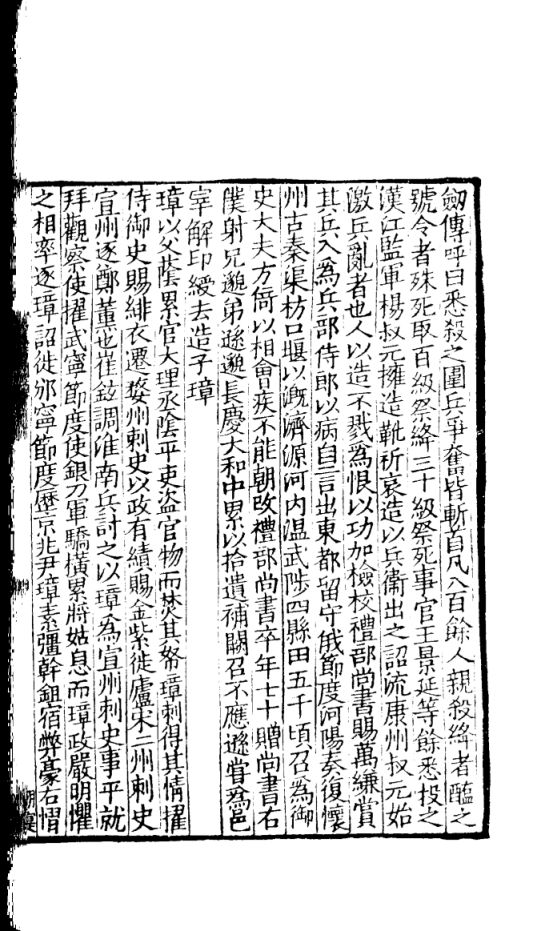 劒傳呼曰悉殺之圍兵爭奮皆斬首凡八百餘人親殺絳者醢之
號令者殊死取百級祭絳三十級祭死事官王景延等餘悉投之
漢江監軍楊叔元擁造靴祈哀造以兵衞出之詔流康州叔元始
激兵亂者也人以造不戮爲恨以功加檢校禮部尚書賜萬縑賞
其兵入爲兵部侍郎以病自言出東都留守俄節度河陽奏復懷
州古秦渠枋口堰以漑濟源河内温武陟四縣田五千頃召爲御
史大夫方倚以相會疾不能朝改禮部尚書卒年七十贈尚書右
僕射兄邈弟遜邈長慶大和中累以拾遺補闕召不應遜嘗爲邑
宰解印綬去造子璋
璋以父蔭累官大理丞陰平吏盜官物而焚其帑璋刺得其情擢
侍御史賜緋衣遷婺州刺史以政有績賜金紫徙廬宋二州刺史
宣州逐鄭薫也崔鉉調淮南兵討之以璋爲宣州刺史事平就
拜觀察使擢武寧節度使銀刀軍驕橫累將姑息而璋政嚴明懼
之相率逐璋詔徙邠寧節度歷京兆尹璋素彊幹鉏宿弊豪右㥄